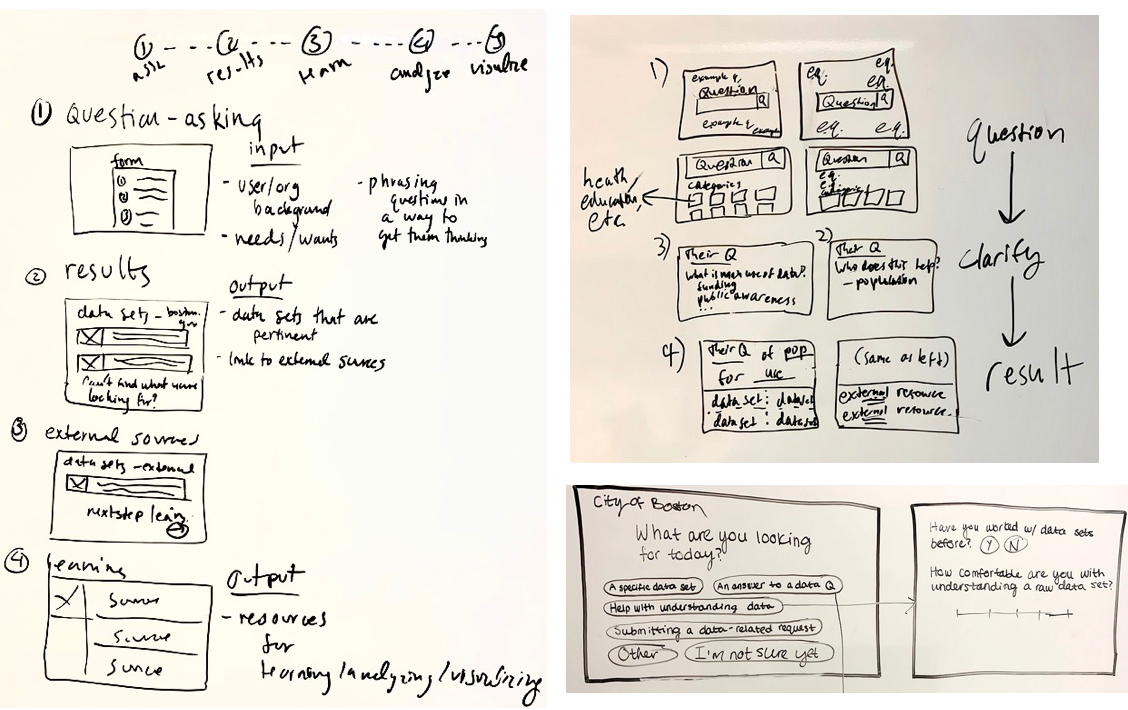 ① --- ② --- ③ ---- ④ --- ⑤
ask
results
learn
analyze
visualize
① Question-asking
form
①
②
③
input
- user/org
background
- needs/wants
- phrasing
questions in
a way to
get them thinking
② results
data sets - boston.
gov
can't find what you're
looking for?
output
- data sets that are
pertinent
- link to external sources
③ external sources
data sets - external
next step learn
④ learning
source
source
source
output
- resources
for
learning/analyzing/visualizing
1)
example q.
Question
Q
example q
example
e.q.
e.q.
e.q.
Question Q
e.q.
e.q.
Question Q
categories
heath
education,
etc.
Question Q
e.q.
e.q.
categories
3)
Their Q
What is main use of data?
funding
public awareness
...
2)
Their Q
Who does this help?
- population
4)
Their Q of pop
for use
data set : dataset
data set : dataset
(same as left)
external resource
external resource
question
clarify
result
City of Boston
What are you looking
for today?
A specific data set
An answer to a data Q
Help with understanding data
Submitting a data-related request
Other
I'm not sure yet
Have you worked w/ data sets
before? Y N
How comfortable are you with
understanding a raw data set?